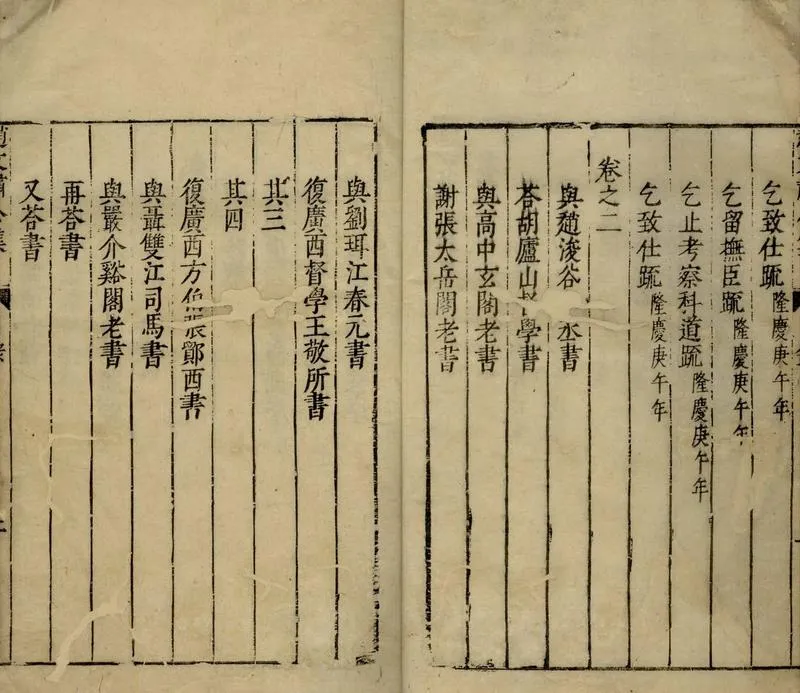 乞致仕疏隆慶庚午年
乞留撫臣疏隆慶庚午年
乞止考察科道疏隆慶庚午年
乞致仕疏隆慶庚午年
卷之二
與趙浚谷 丞書
荅胡廬山 學書
與高中玄閣老書
謝張太岳閣老書
與劉珥江春元書
復廣西督學王敬所書
其三
其四
復廣西方伯張鄖西書
與聶雙江司馬書
與嚴介谿閣老書
再荅書
又荅書